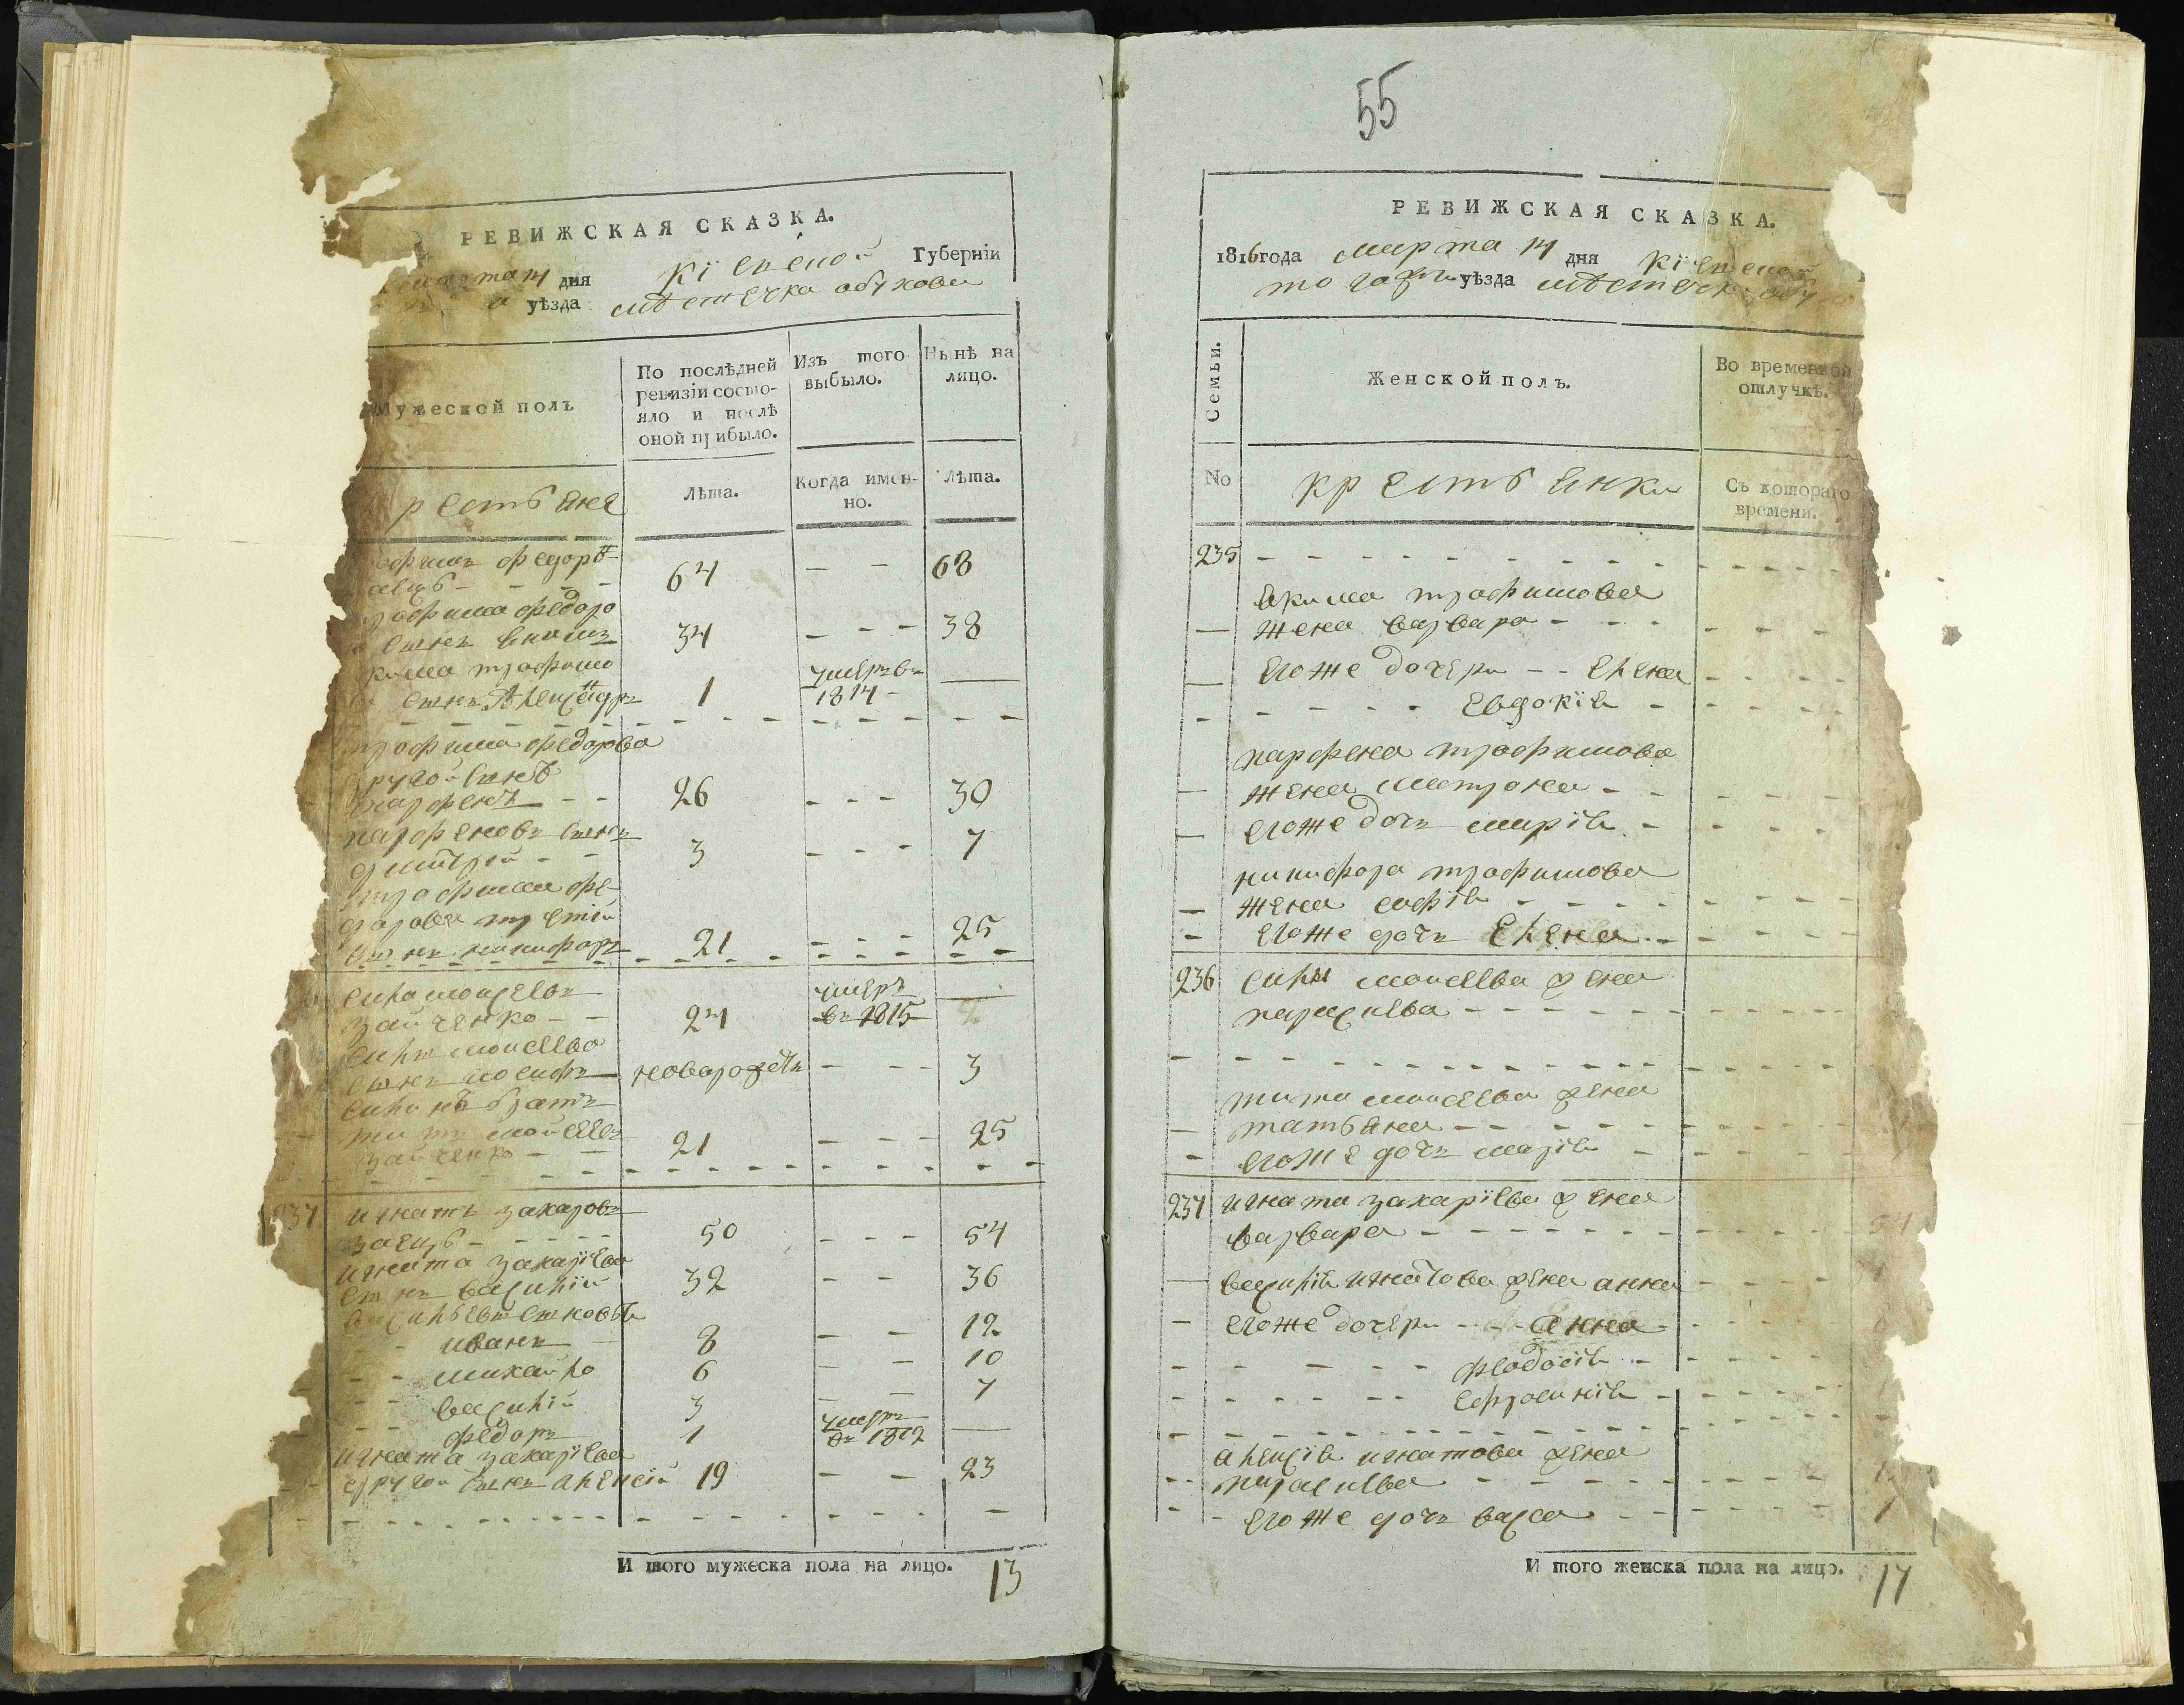 РЕВИЖСКАЯ СКАЗКА.
марта 14 дня Кіевской Губерніи
уѣзда мѣстечка обухова
Мужеской полъ
По послѣдней ревизіи состояло и послѣ оной прибыло.
Изъ того выбыло.
Нынѣ на лицо.
Лѣта.
Когда именно.
Лѣта.
рестьяне
рофимъ федоръ
аецъ - - - 64 - - 68
рофима федоро
сынъ екимъ 34 - - - 38
кима трофимо
сынъ Александръ 1 умеръ въ 1814 - —
трофима федорова
другой сынъ
парфенъ - - 26 - - - 30
парфеновъ сынъ
дмитрей - - 3 - - - 7
трофима фе-
дорова третій
сынъ никифоръ 21 - - - 25
сила моисеевъ
зайченко - - 24 умеръ въ 1815 —
силы моисеева
сынъ иосифъ новорожденъ - - - 3
силинъ братъ
титъ моисеевъ
зайченко - - 21 - - - 25
237 игнатъ захаровъ
заецъ - - - - 50 - - - 54
игната захаріева
сынъ василій 32 - - 36
васильевы сыновья
иванъ - 8 - - 12
михайло 6 - - 10
василій 3 - - 7
федоръ 1 умеръ въ 1812 —
игната захаріева
другой сынъ алексій 19 - - 23
И того мужеска пола на лицо. 13
55
РЕВИЖСКАЯ СКАЗКА.
1816 года марта 14 дня Кіевской
го уѣзда мѣстечка обу
Семьи.
Женской полъ.
Во временной отлучкѣ.
No
крестьянки
Съ котораго времени.
235 - - - - - - - -
якима трофимова
— жена варвара - - -
— егоже дочери - - елена
- - - - - евдокія -
парфена трофимова
— жена матрона - -
— егоже дочь марія -
никифора трофимова
— жена софія - - - -
- егоже дочь Елена - -
236 силы моисеева жена
параскева - - - - - -
- - - - - - - - - -
тита моисеева жена
— татьяна - - - - -
- егоже дочь марія -
237 игната захаріева жена
варвара - - - - - - - 54
— василія игнатова жена анна
- егоже дочери - - - анна
- - - - - феодосія -
- - - - - ефросинія -
- - - - - - - - - -
алексія игнатова жена
- - параскева - - - -
- - егоже дочь васса - -
И того женска пола на лицо. 14